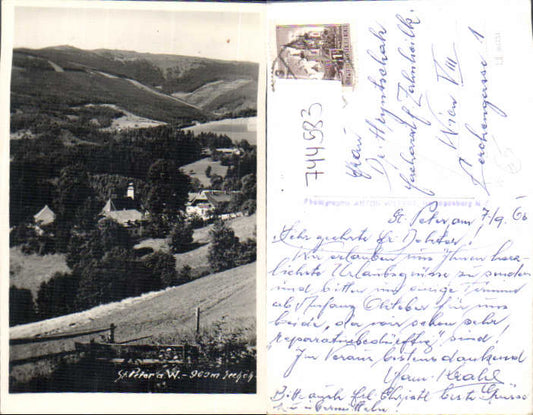 St. Peter a. W. - 900m Seehöh
744583
Frau
Dr. Hryntschak
Facharzt f. Zahnheilk.
Wien VIII
Lerchengasse 1
St. Peter, am 7/9. 60
Sehr geehrte Fr. Doktor!
Wir erlauben uns Ihnen herz-
lichste Urlaubsgrüsse zu senden
und bitten um einige Termine
ab Anfang Oktober für uns
beide, da wir schon sehr
"reparaturbedürftig" sind,
Im Voraus bestens dankend
Fam.
Bitte auch Frl. Christl beste Grüsse
zu übermitteln.